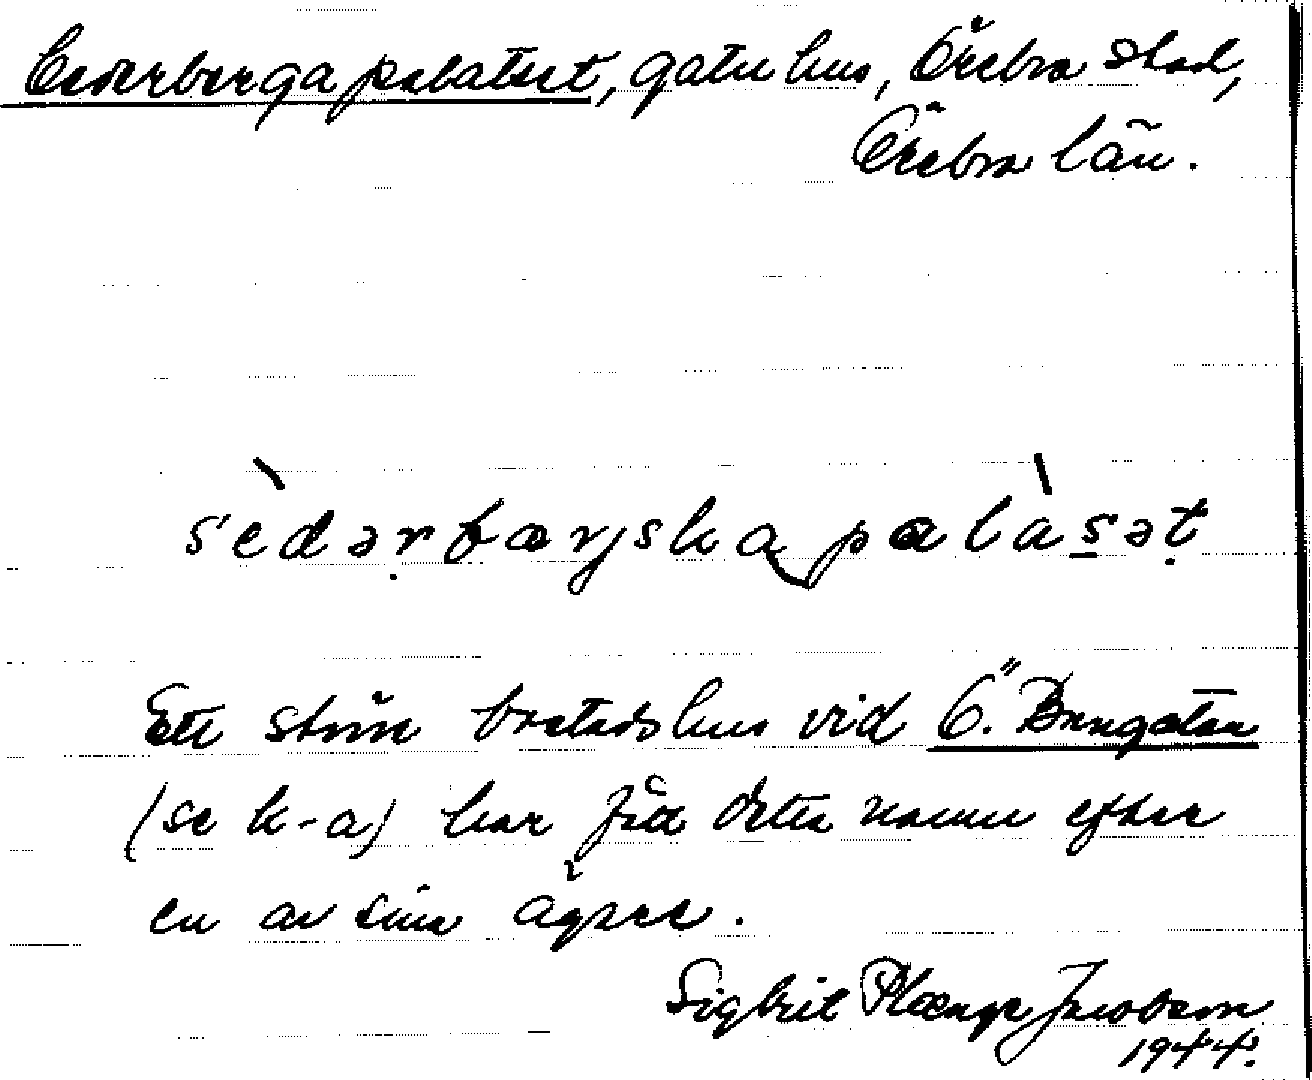 Cederbergapalatset, gatuhus, Örebro stad,
Örebro län.
sèdərbærjska palàsət
Ett större bostadshus vid Ö. Bangatan
(se k-a) har fått detta namn efter
en av sina ägare.
Sigbrit Plænge Jacobson
1944.